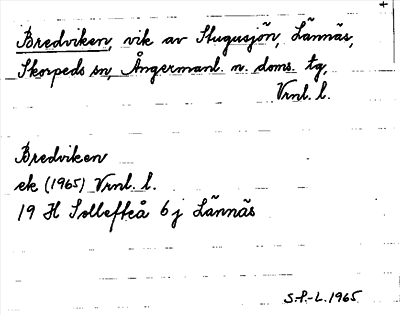 +
Bredviken, vik av Stugusjön, Lännäs,
Skorpeds sn, Ångermanl. n. doms. tg,
Vrnl. l.
Bredviken
ek (1965) Vrnl. l.
19 H Sollefteå 6 j Lännäs
S.-P.-L. 1965